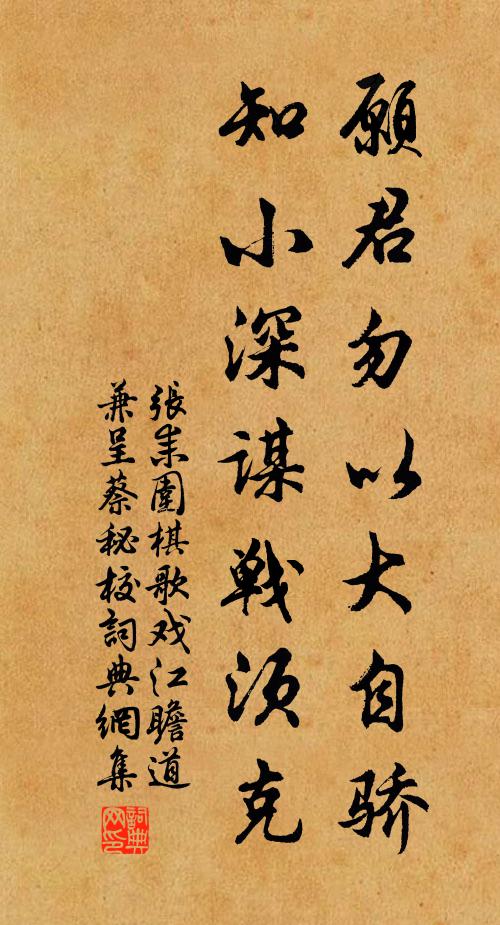 願君勿以大自骄
知小深谋戰须克
張耒圍棋歌戏江瞻道
兼呈蔡秘校詞典網集
詞典网印